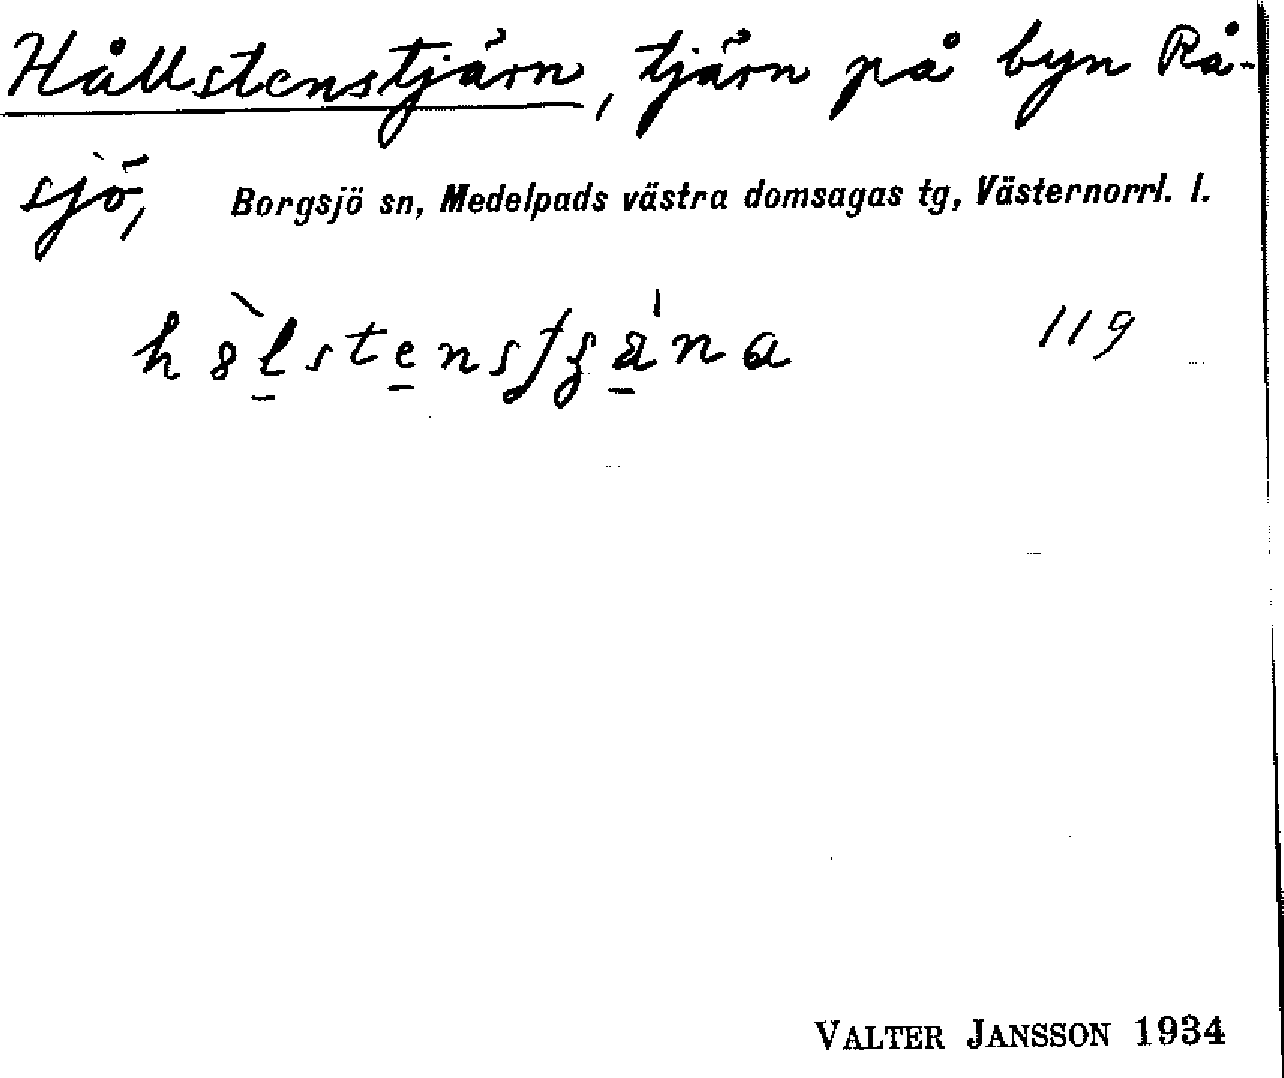 Hållstenstjärn, tjärn på byn Rå-
sjö, Borgsjö sn, Medelpads västra domsagas tg, Västernorrl. l.
119
VALTER JANSSON 1934